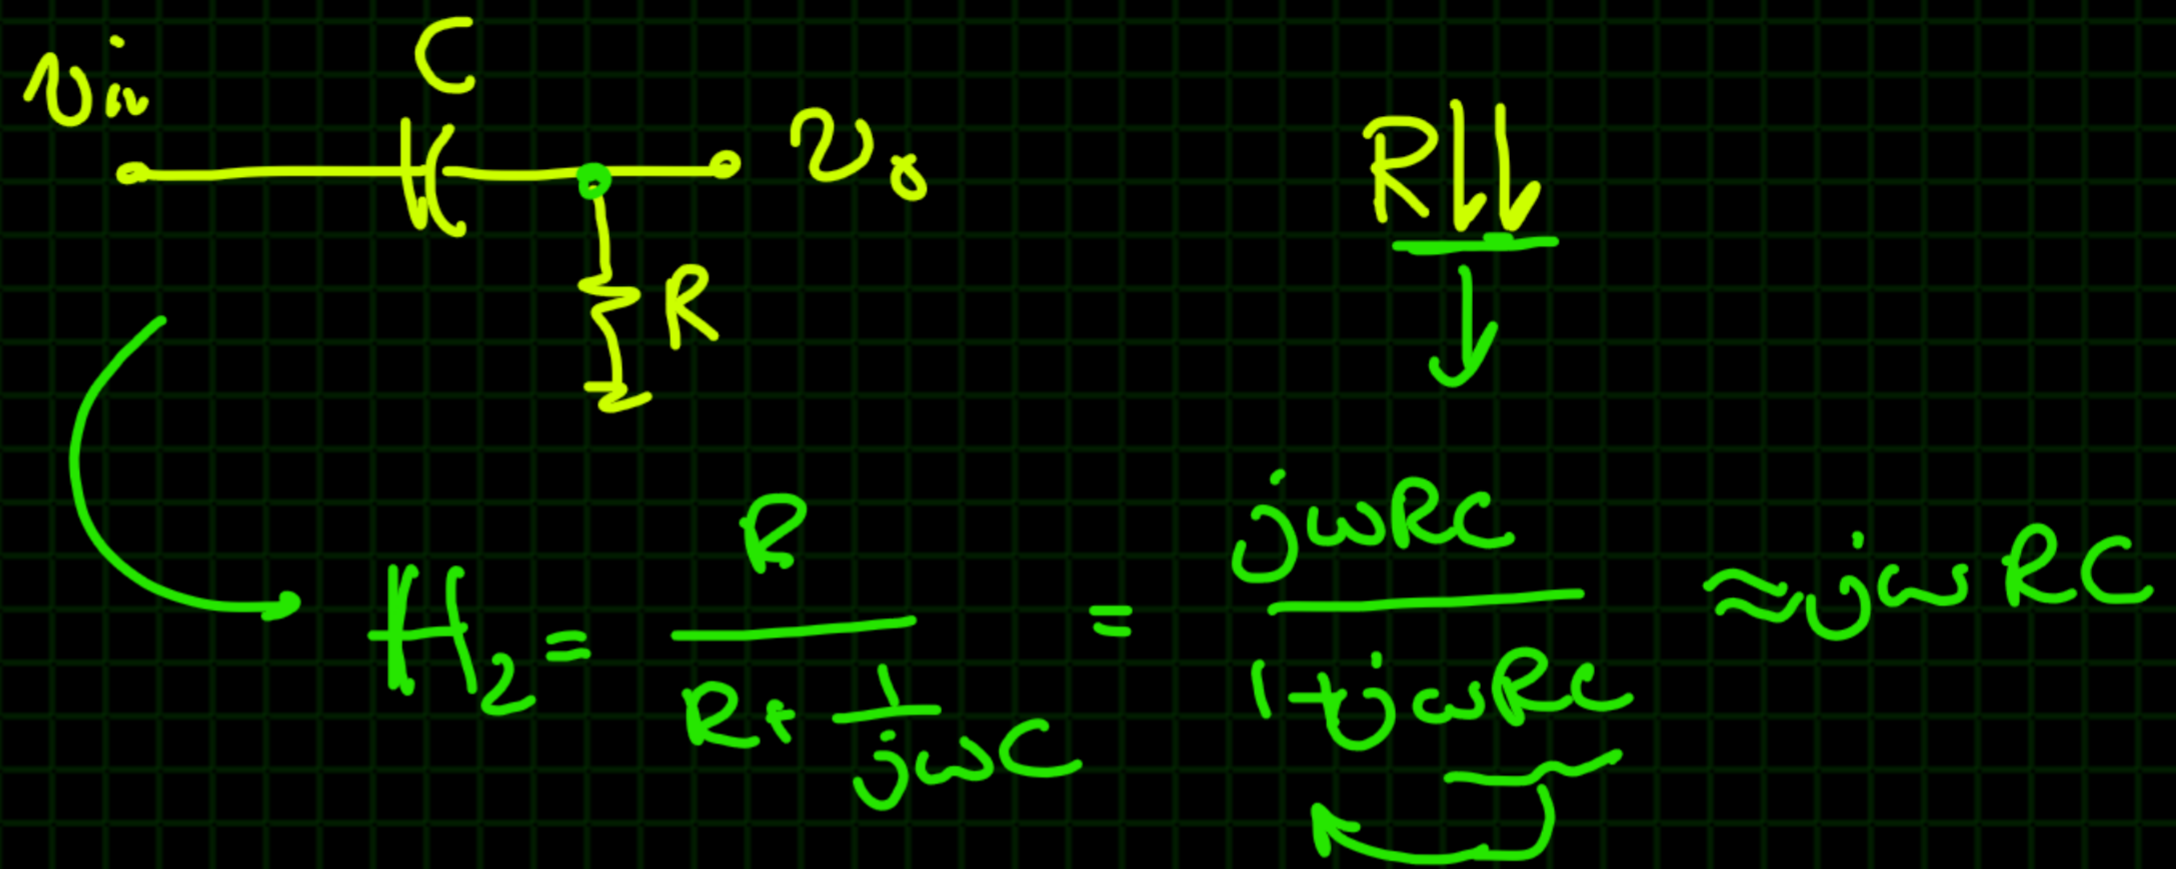 C
Vin
Vo
R↓↓
R
H₂ = R / (R + 1/jωC) = jωRC / (1+jωRC) ≈ jωRC